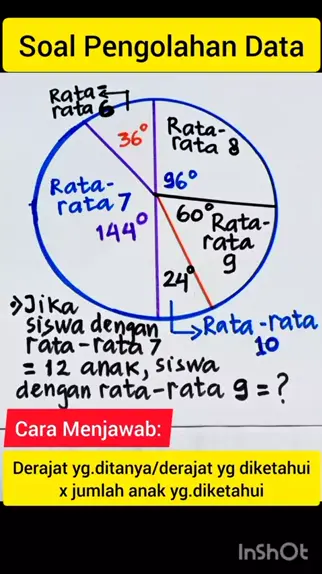 Soal Pengolahan Data
Rata-
rata 6
36°
Rata-
rata 8
96°
Rata-
rata 7
144°
60°
Rata-
rata
9
24°
Rata-rata
10
→Jika
siswa dengan
rata-rata 7
= 12 anak, siswa
dengan rata-rata 9 = ?
Cara Menjawab:
Derajat yg.ditanya/derajat yg diketahui
x jumlah anak yg.diketahui
InShOt